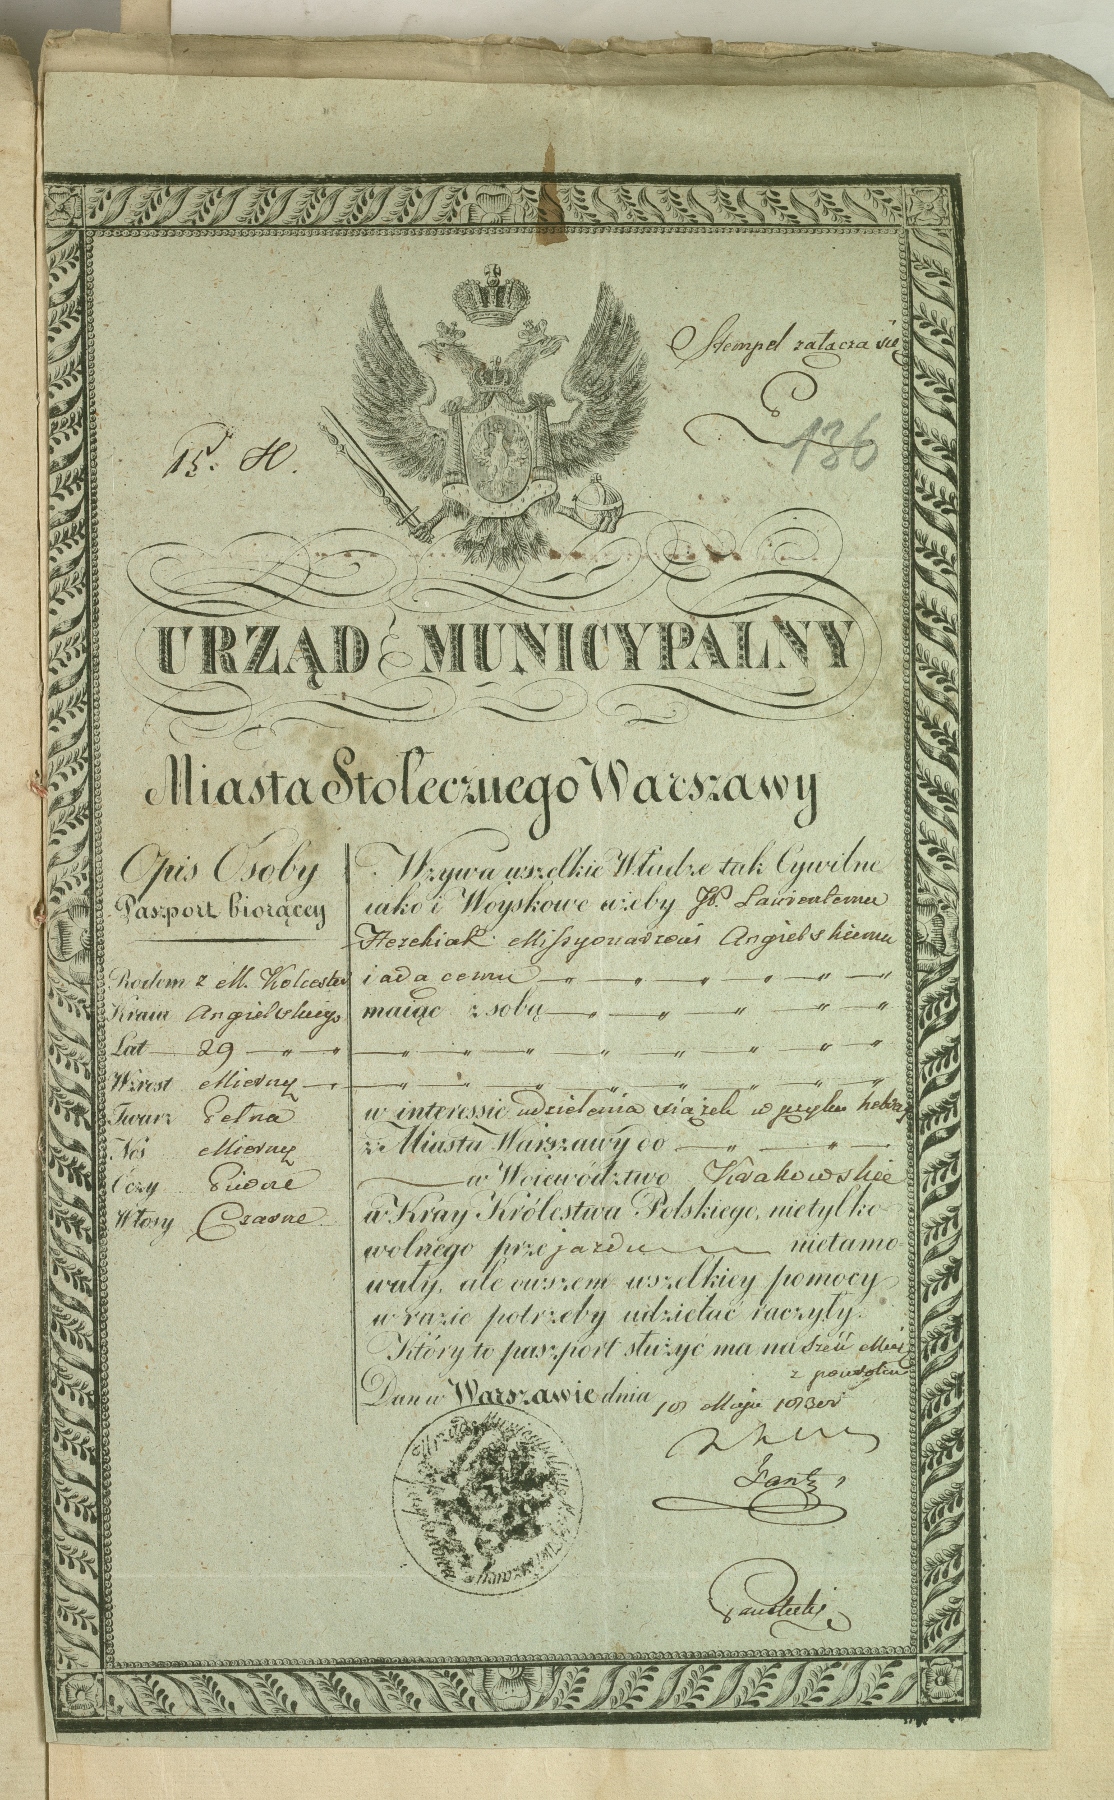 Stempel załącza się
136
15. H.
URZĄD MUNICYPALNY
Miasta Stołecznego Warszawy
Opis Osoby
Paszport biorącey
Rodem z M. Kolcester
Kraiu Angielskiego
Lat 29
Wzrost Mierny
Twarz Pełna
Nos Mierny
Oczy Piwne
Włosy Czarne
Wzywa wszelkie Władze tak Cywilne
iako i Woyskowe ażeby JP. Lawrentemu
Hezekiah Missyonarzowi Angielskiemu
iadącemu
maiąc z sobą
w interessie udzielenia xiążek w języku hebray
z Miasta Warszawy do
w Woiewództwo Krakowskie
w Kray Królestwa Polskiego, nietylko
wolnego przejazdu nietamo-
wały, ale owszem wszelkiey pomocy
w razie potrzeby udzielać raczyły.
Który to paszport służyć ma na sześć Mcy
z powrotem
Dan w Warszawie dnia 18 Maja